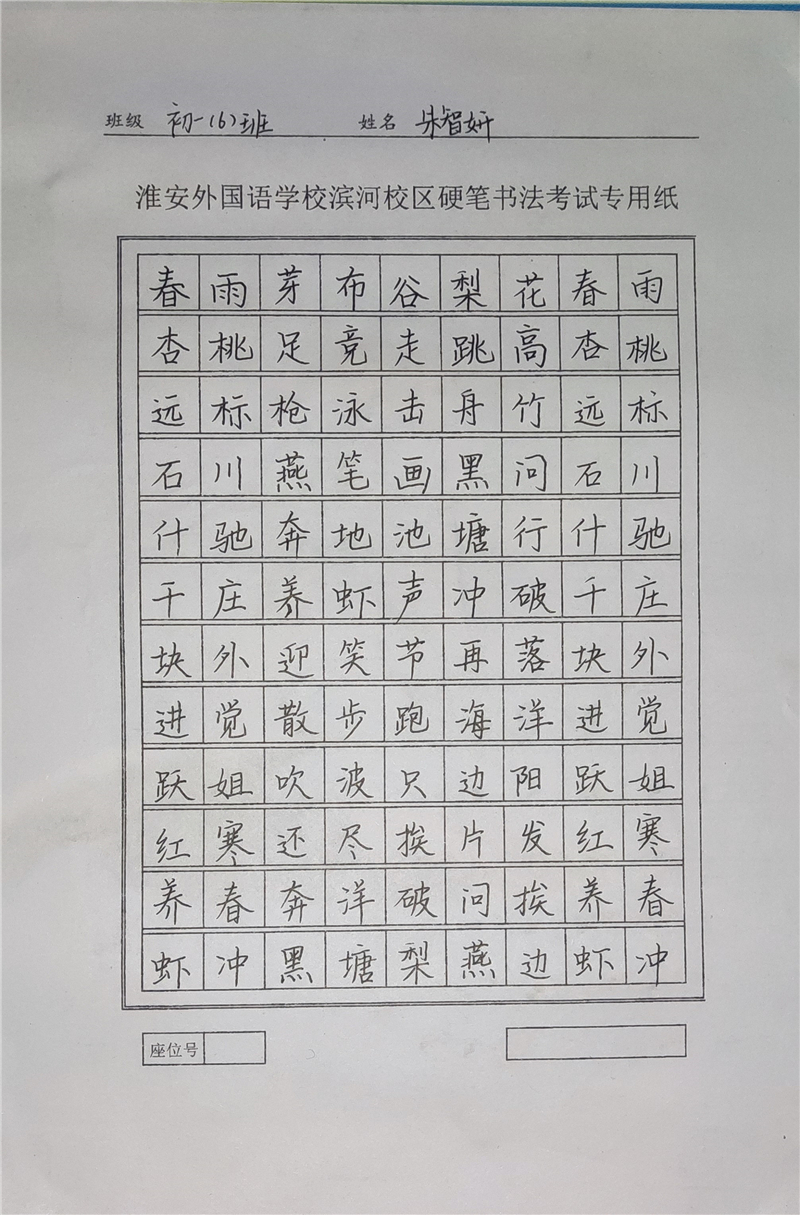 班级 初一(6)班 姓名 朱智妍
淮安外国语学校滨河校区硬笔书法考试专用纸
春雨芽布谷梨花春雨
杏桃足竞走跳高杏桃
远标枪泳击舟竹远标
石川燕笔画黑问石川
什驰奔地池塘行什驰
千庄养虾声冲破千庄
块外迎笑节再落块外
进觉散步跑海洋进觉
跃姐吹波只边阳跃姐
红寒还尽挨片发红寒
养春奔洋破问挨养春
虾冲黑塘梨燕边虾冲
座位号